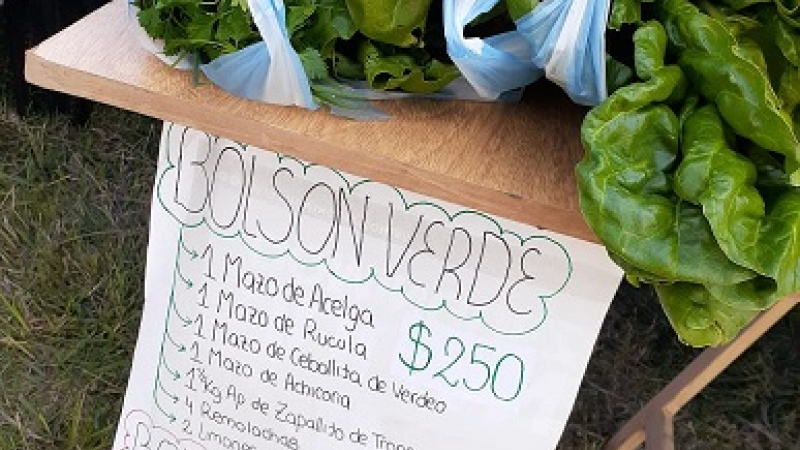 BOLSON VERDE
1 Mazo de Acelga
1 Mazo de Rucula
1 Mazo de Cebollita de Verdeo
1 Mazo de Achicoria
$250
Kg Ap de Zapallito de
4 Remolachas
2 Limones